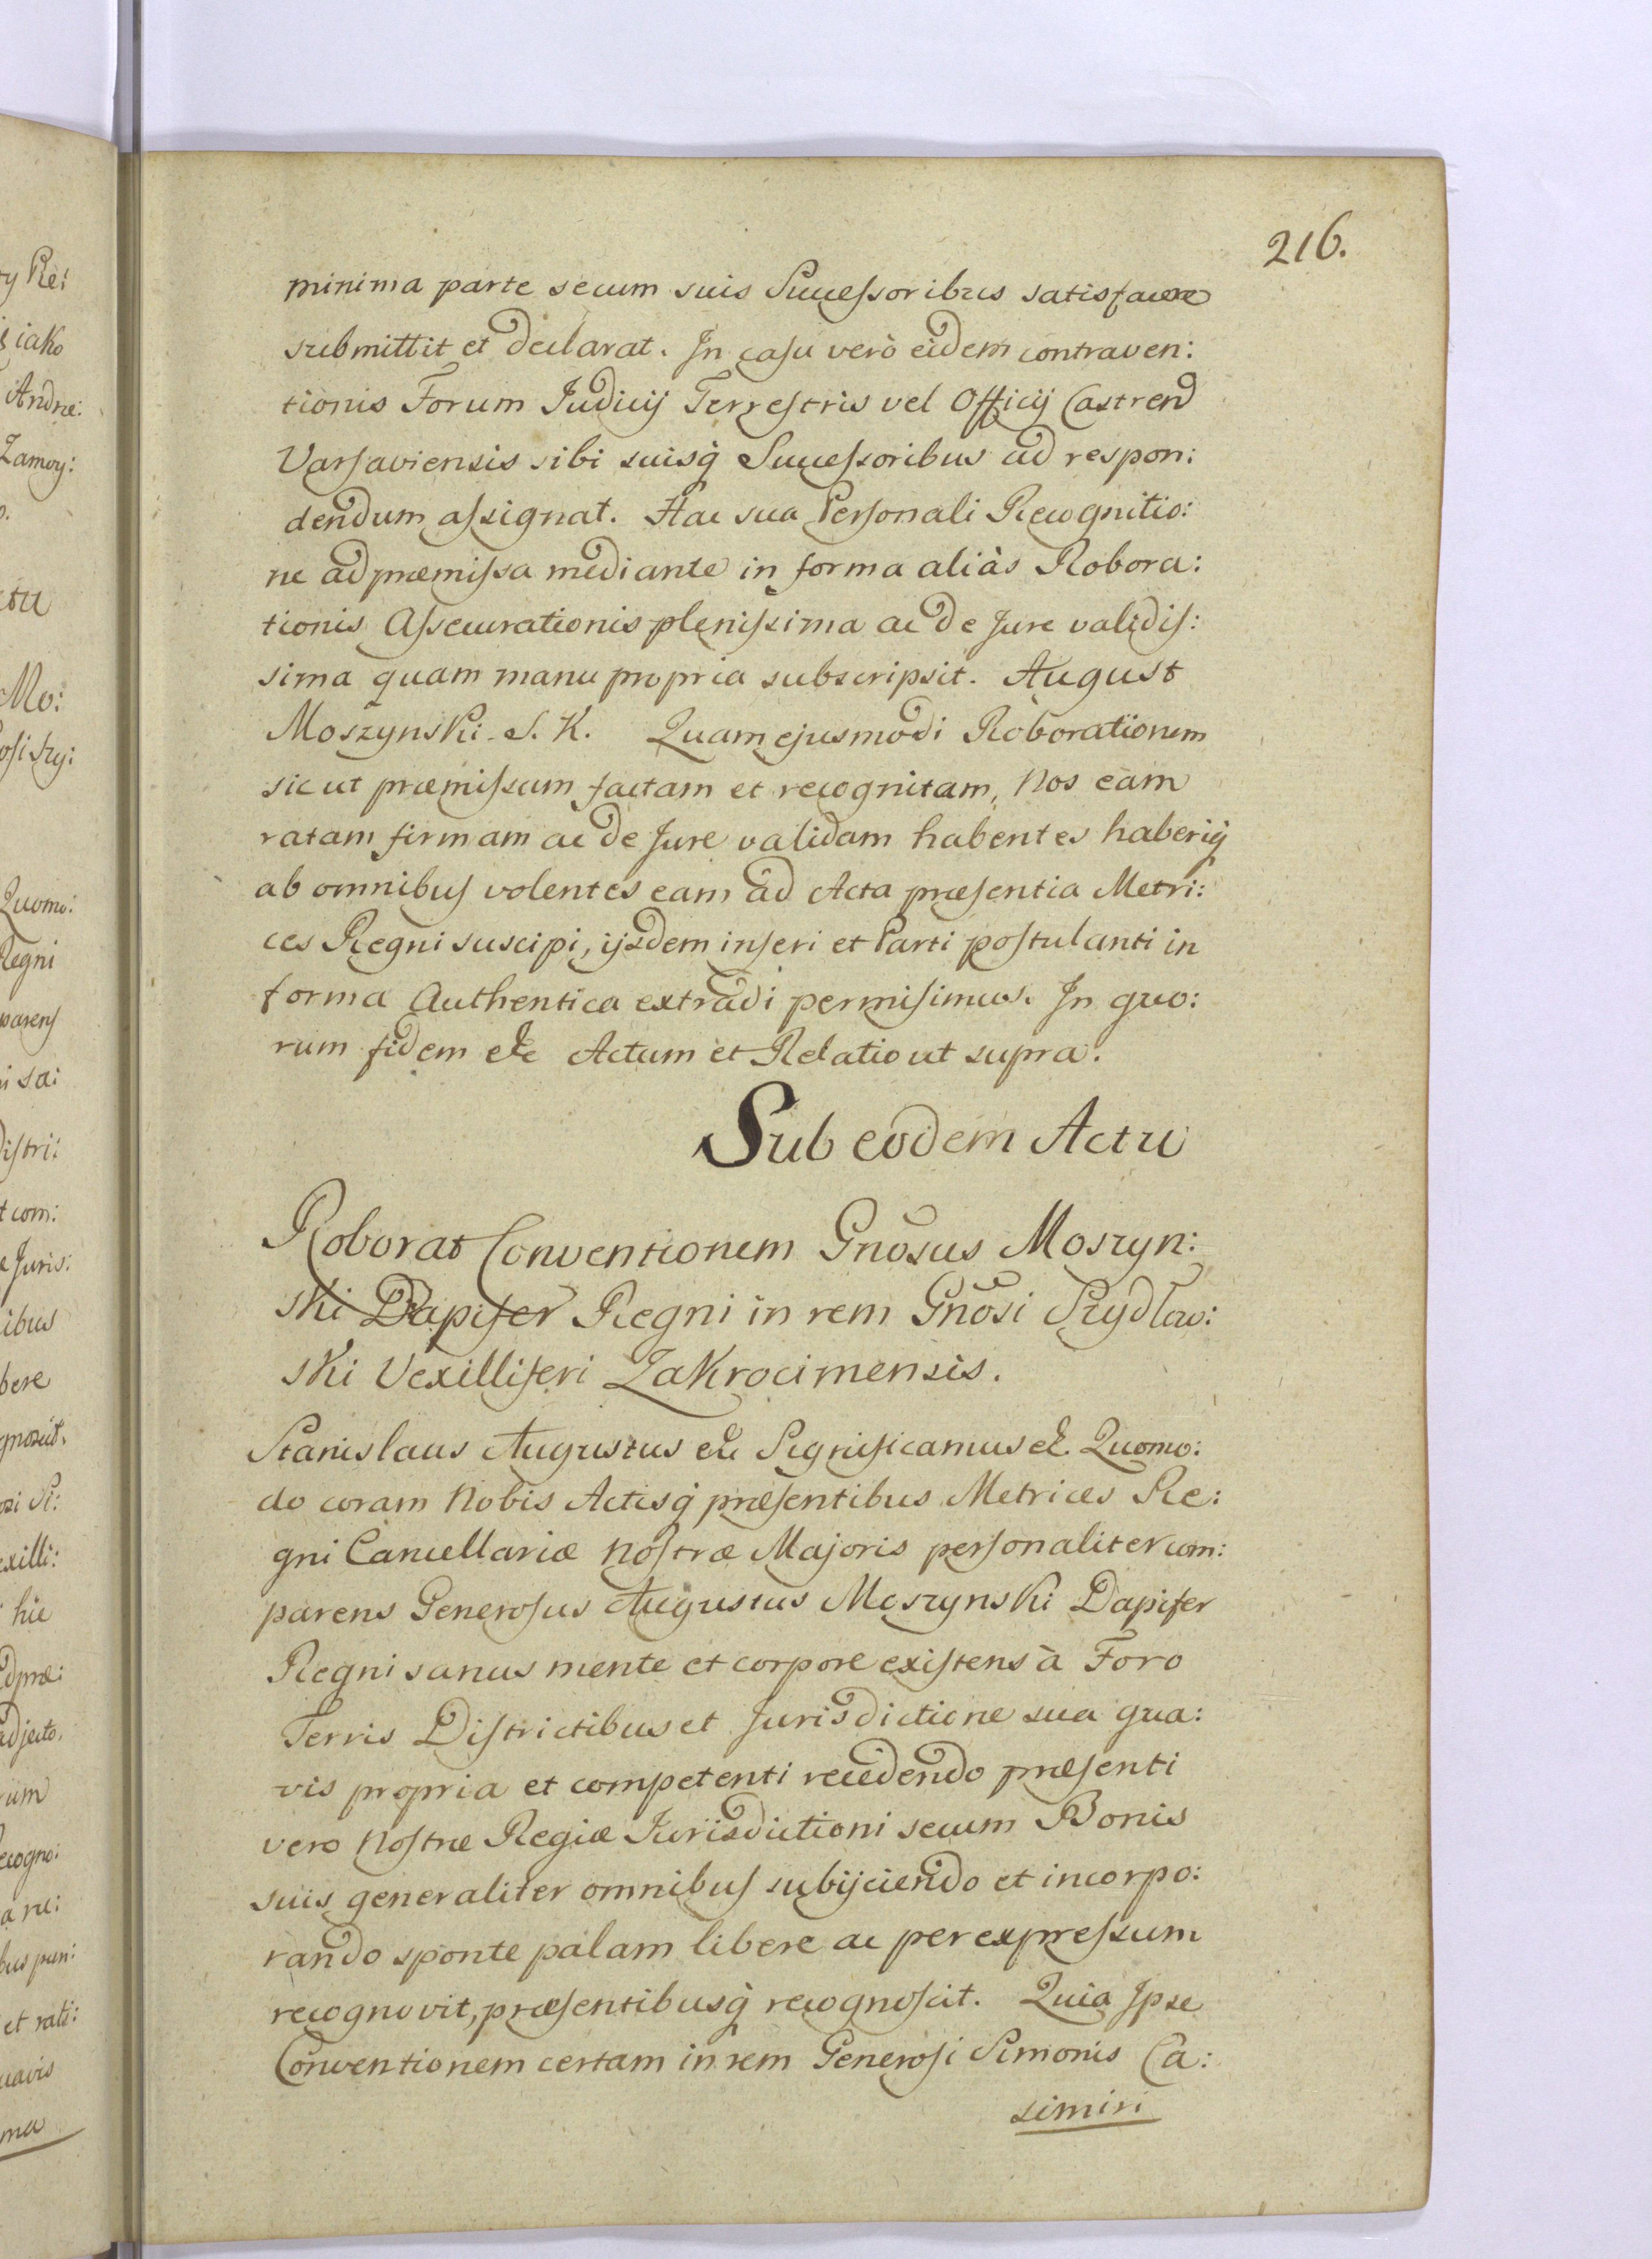 216.
minima parte secum suis Successoribus satisfacere
submittit et declarat. In casu verò eidem contraven:
tionis Forum Iudicij Terrestris vel Officij Castrend
Varsaviensis sibi suisq̨ Successoribus ad respon:
dendum assignat. Hac sua Personali Recognitio:
ne ad præmissa mediante in forma aliàs Robora:
tionis Assecurationis plenissima ac de Jure validis:
sima quam manu propria subscripsit. August
Moszynski S. K. Quam ejusmodi Roborationem
sic ut præmissum factam et recognitam, Nos eam
ratam firmam ac de Jure validam habentes haberiq̨
ab omnibus volentes eam ad Acta præsentia Metri:
ces Regni suscipi, ijsdem inseri et Parti postulanti in
forma Authentica extradi permisimus. In quo:
rum fidem etc Actum et Relatio ut supra.
Sub eodem Actu
Roborat Conventionem Gnosus Moszyn:
ski Dapifer Regni in rem Gnosi Szydłow:
ski Vexilliferi Zakrocimensis.
Stanislaus Augustus etc Significamus etc. Quomo:
do coram Nobis Actisq̨ præsentibus Metrices Re:
gni Cancellariæ Nostræ Majoris personaliter com:
parens Generosus Augustus Moszynski Dapifer
Regni sanus mente et corpore existens à Foro
Terris Districtibus et Jurisdictione sua qua:
vis propria et competenti recedendo præsenti
vero Nostræ Regiæ Iurisdictioni secum Bonis
suis generaliter omnibus subijciendo et incorpo:
rando sponte palam libere ac per expressum
recognovit, præsentibusq̨ recognoscit. Quia Ipse
Conventionem certam in rem Generosi Simonis Ca:
simiri